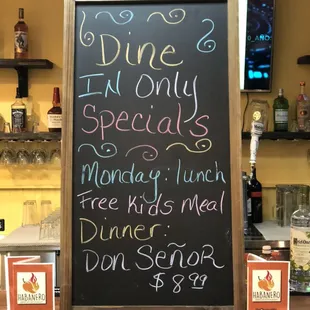 Dine
IN Only
Specials
Monday: lunch
Free Kids Meal
Dinner:
Don Señor
$8.99
HABANERO
HABANERO